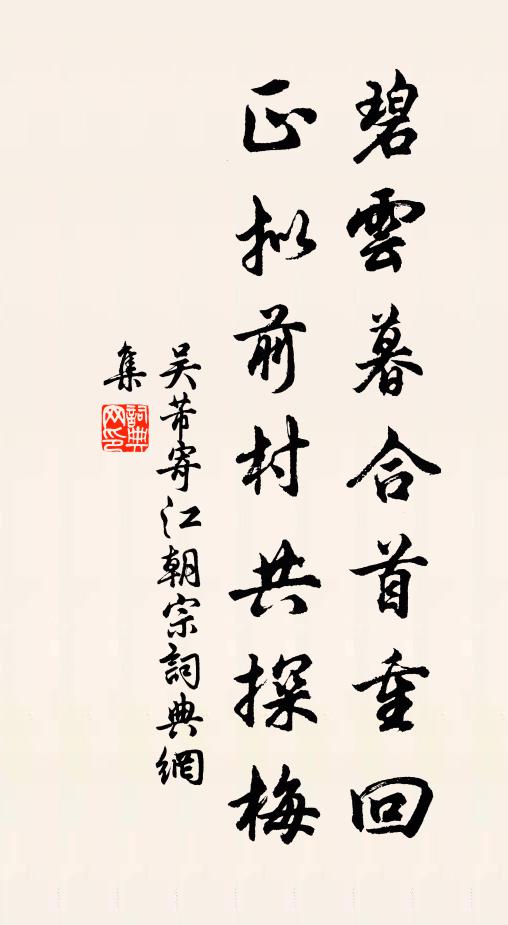 碧雲暮合首重回
正拟前村共探梅
吴芾寄江朝宗詞典網
集
詞典
网印